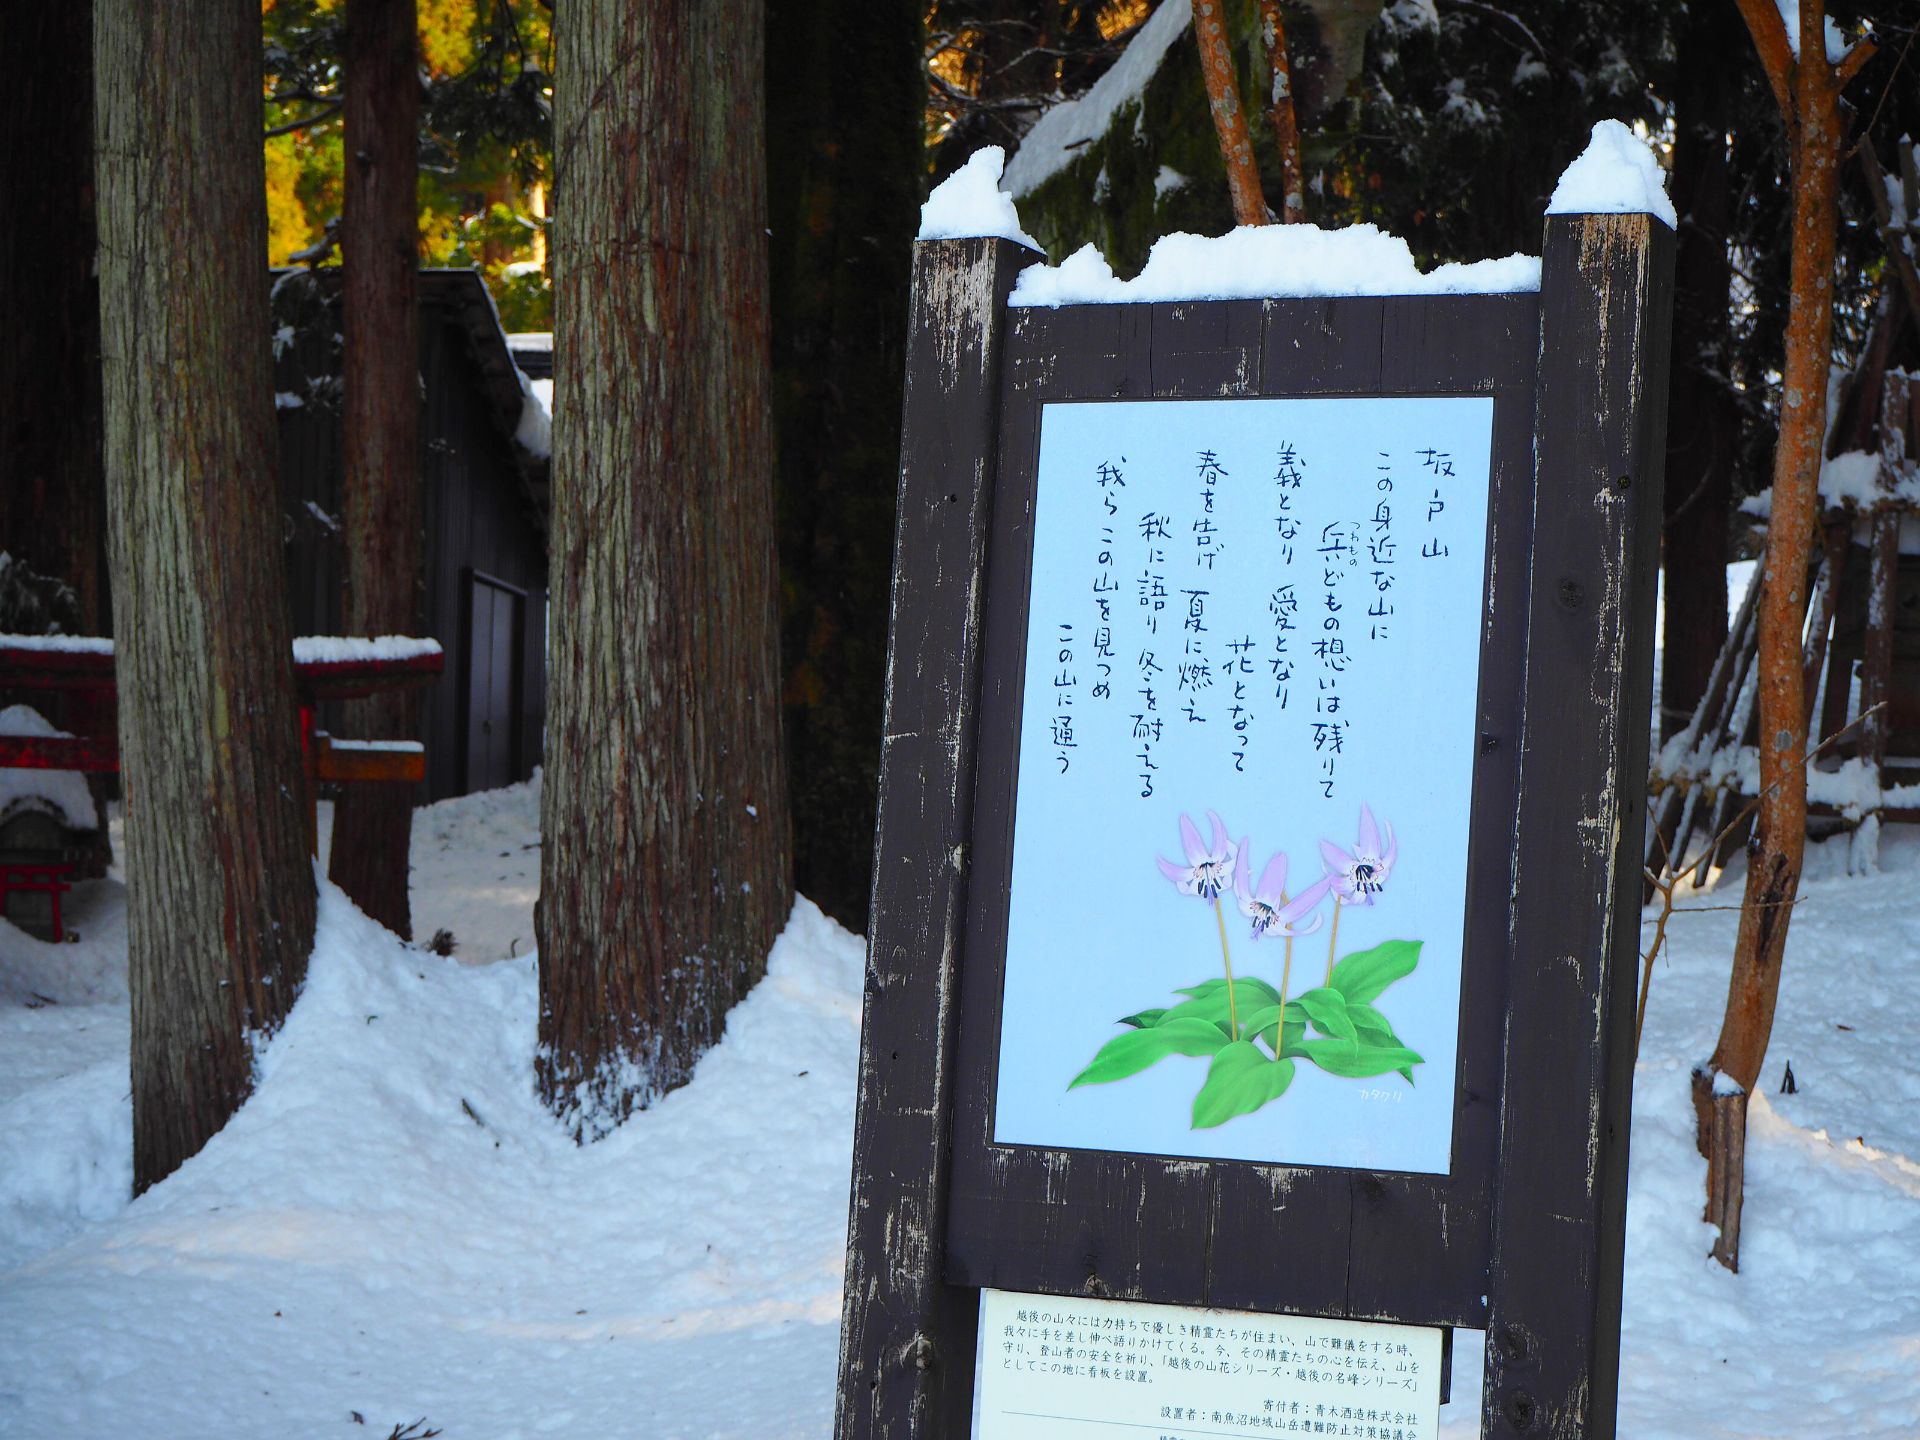 坂戸山
この身近な山に
兵どもの想いは残りて
つわもの
義となり 愛となり
花となって
春を告げ 夏に燃え
秋に語り 冬を耐える
我らこの山を見つめ
この山に通う
カタクリ
越後の山々には力持ちで優しき精霊たちが住まい、山で難儀をする時、
我々に手を差し伸べ語りかけてくる。今、その精霊たちの心を伝え、山を
守り、登山者の安全を祈り、「越後の山花シリーズ・越後の名峰シリーズ」
としてこの地に看板を設置。
寄付者：青木酒造株式会社
設置者：南魚沼地域山岳遭難防止対策協議会